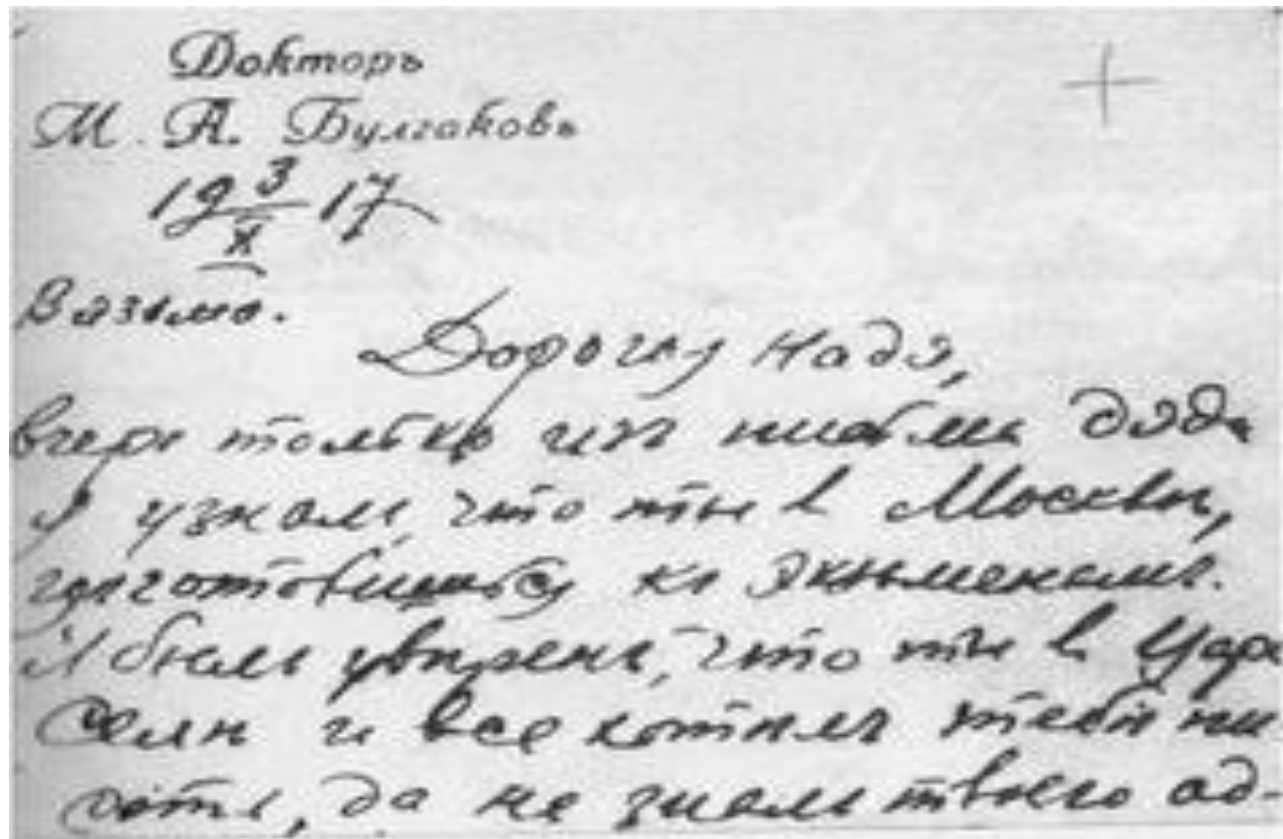 Докторъ
М. А. Булгаковъ
19 3/X 17
Вязьма.
Дорогая Надя,
вчера только изъ письма дяди
я узналъ, что ты в Москвѣ,
готовишься къ экзаменамъ.
Я былъ увѣренъ, что ты в Царс
Селѣ и все хотѣлъ тебѣ пи-
сать, да не зналъ твоего ад-